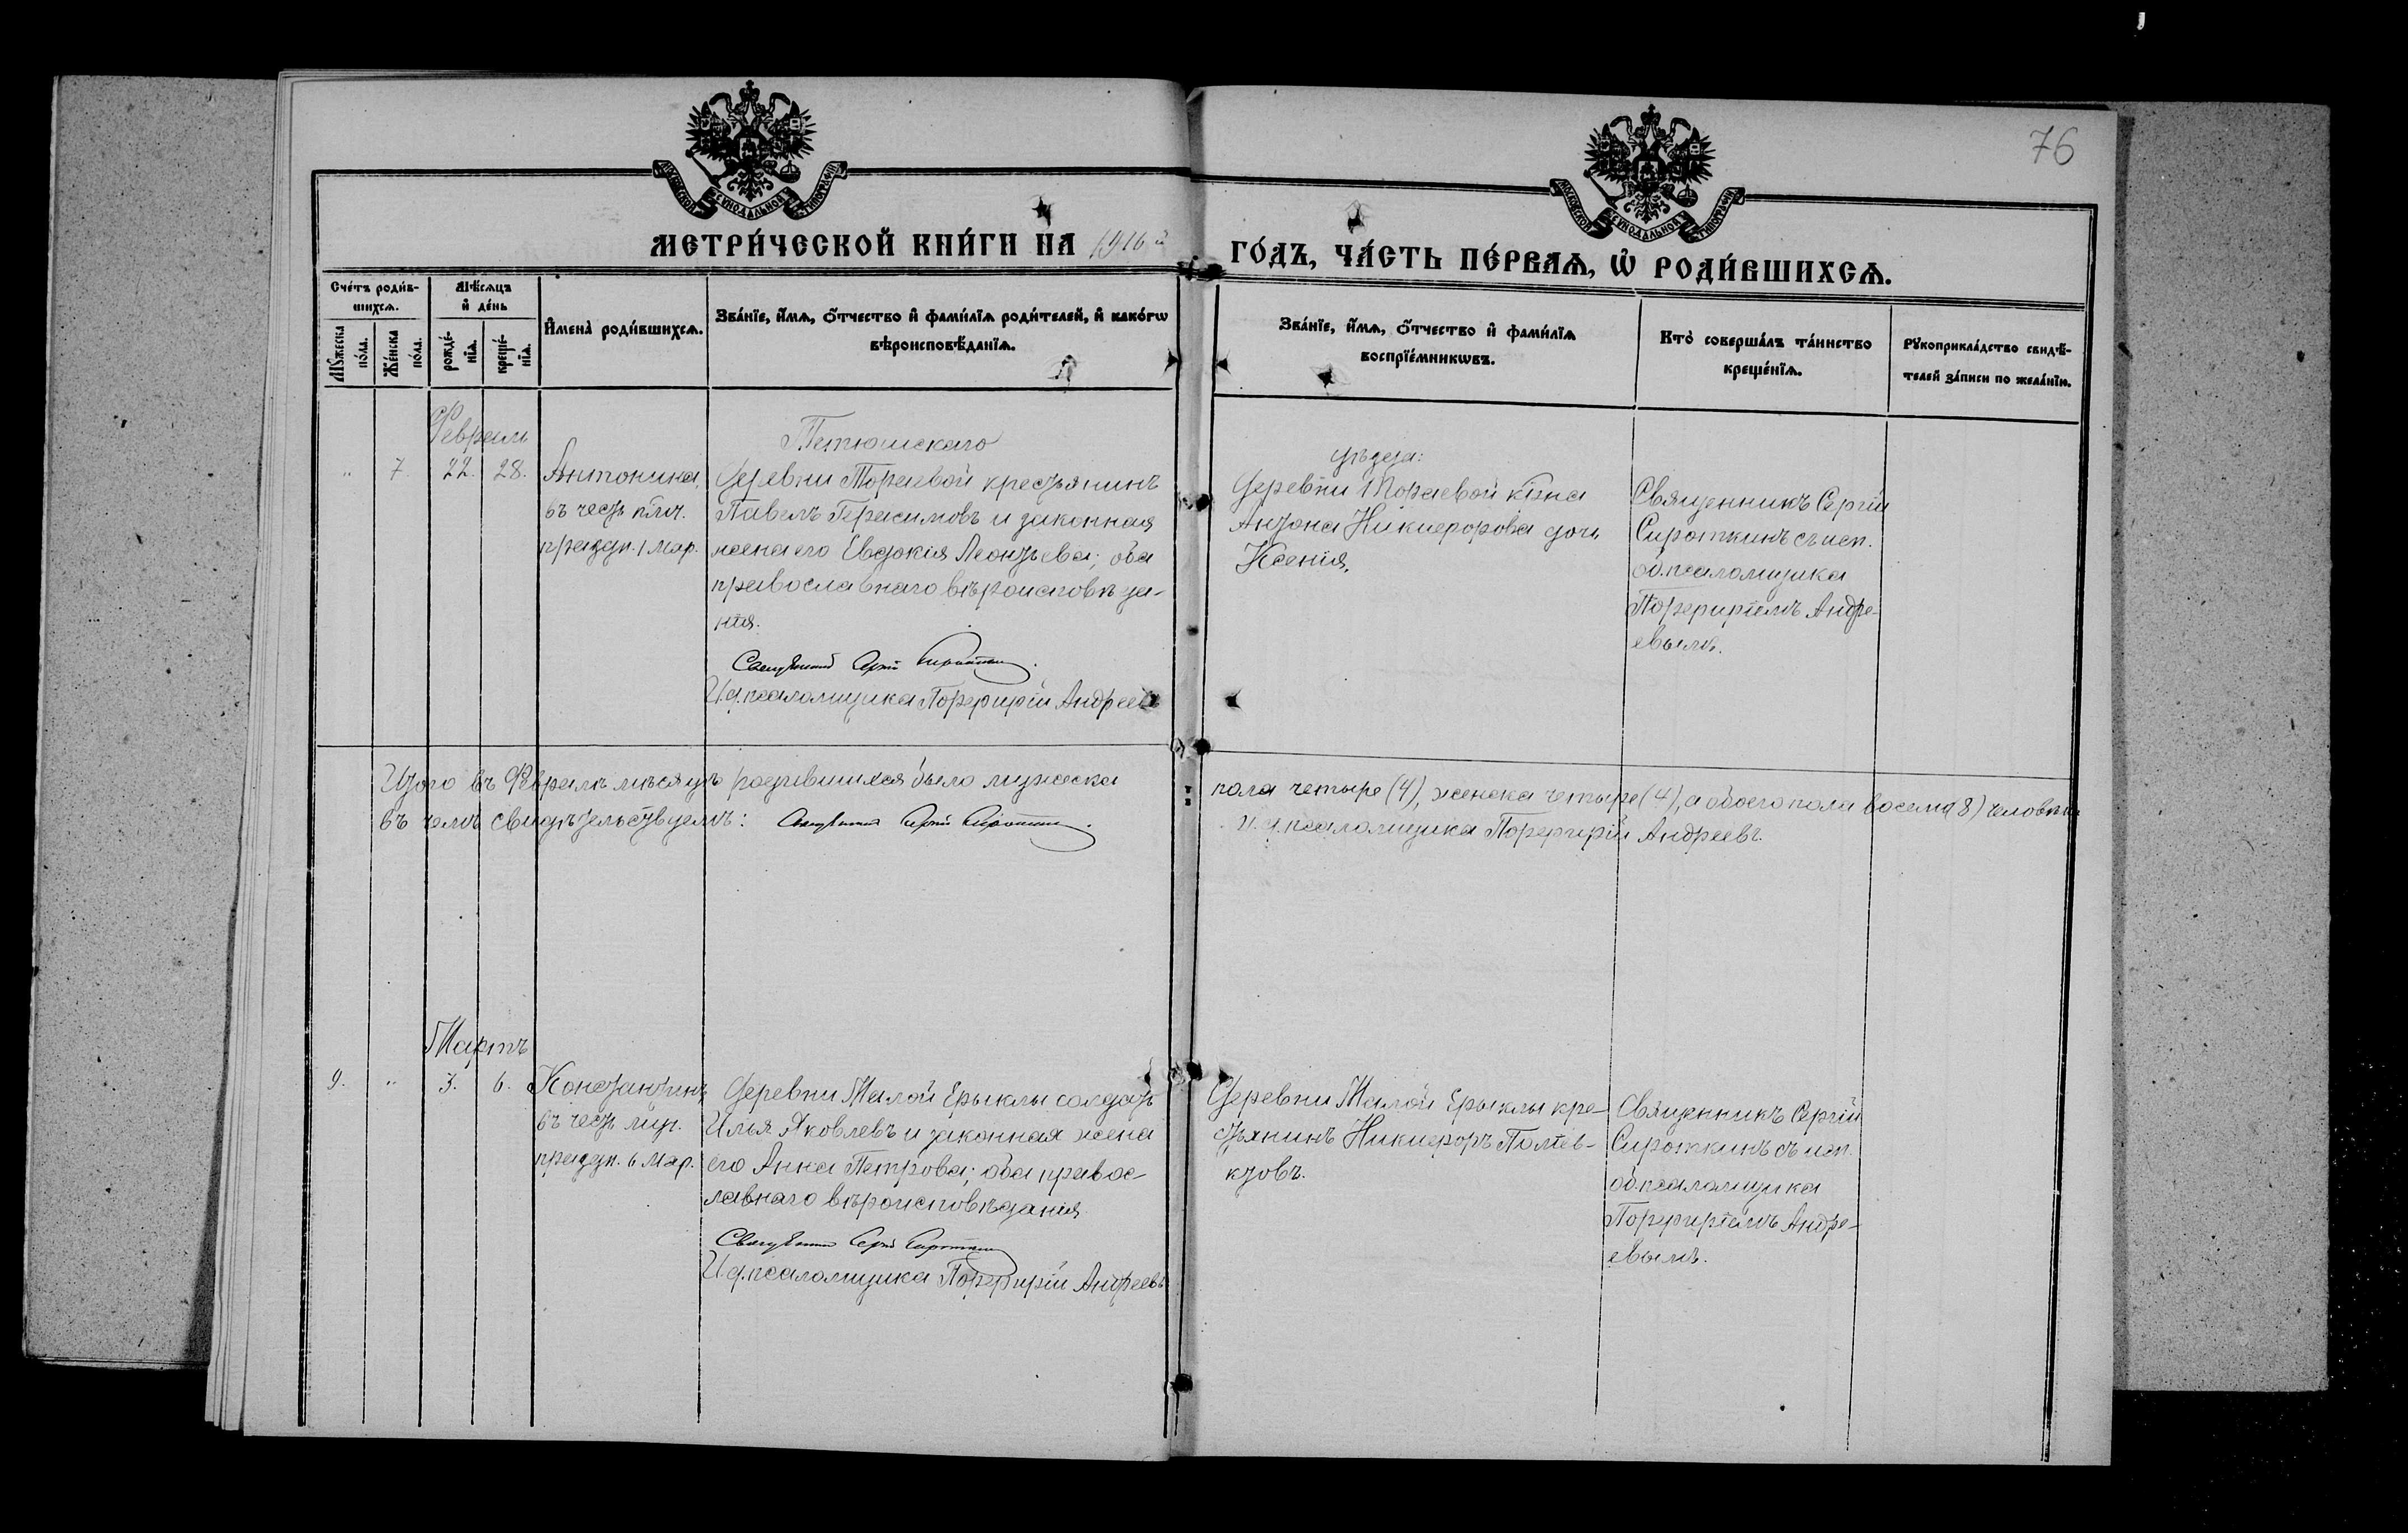 76
МОСКОВСКОЙ СѴНОДАЛЬНОЙ ТИПОГРАФІИ
МОСКОВСКОЙ СѴНОДАЛЬНОЙ ТИПОГРАФІИ
МЕТРИ́ЧЕСКОЙ КНИ́ГИ НА 1916й
ГО́ДЪ, ЧА́СТЬ ПЕ́РВАѦ, Ѡ҆ РОДИ́ВШИХСѦ.
Сче́тъ роди́в-
шихсѧ.
Мꙋ́жеска по́ла.
Же́нска по́ла.
Мѣ́сѧцъ
и҆ де́нь
рожде́-
нїѧ.
креще́-
нїѧ.
И҆мена̀ роди́вшихсѧ.
Зва́нїе, и҆́мѧ, ѻ҆́тчество и҆ фами́лїѧ роди́телей, и҆ како́гѡ
вѣроисповѣ́данїѧ.
Зва́нїе, и҆́мѧ, ѻ҆́тчество и҆ фами́лїѧ
воспрїе́мникѡвъ.
Кто̀ соверша́лъ та́инство
креще́нїѧ.
Рꙋкоприкла́дство свидѣ́-
телей за́писи по жела́нїю.
Февраль
" 7. 22. 28.
Антонина,
въ честь прп.
праздн. 1 мар.
Тетюшскаго
Деревни Тораевой крестьянинъ
Павелъ Герасимовъ и законная
жена его Евдокія Леонтьева; оба
православнаго вѣроисповѣда-
нія.
Священникъ Сергій Сироткинъ.
И.д.псаломщика Порфирій Андреевъ
уѣзда:
Деревни Тораевой кр-на
Антона Никифорова дочь
Ксенія.
Священникъ Сергій
Сироткинъ съ исп.
об. псаломщика
Порфиріемъ Андре-
евымъ.
Итого въ Февралѣ мѣсяцѣ родившихся было мужеска
пола четыре (4), женска четыре (4), а обоего пола восемь (8) человѣкъ
въ чемъ свидѣтельствуемъ: Священникъ Сергій Сироткинъ.
и.д.псаломщика Порфирій Андреевъ.
Мартъ
9. " 3. 6.
Константинъ,
въ честь муч.
праздн. 6 мар.
Деревни Малой Ерыклы солдатъ
Илья Яковлевъ и законная жена
его Анна Петрова; оба правос-
лавнаго вѣроисповѣданія
Священникъ Сергій Сироткинъ
И.д.псаломщика Порфирій Андреевъ
Деревни Малой Ерыклы кре-
стьянинъ Никифоръ Полiев-
ктовъ.
Священникъ Сергій
Сироткинъ съ исп.
об.псаломщика
Порфиріемъ Андре-
евымъ.